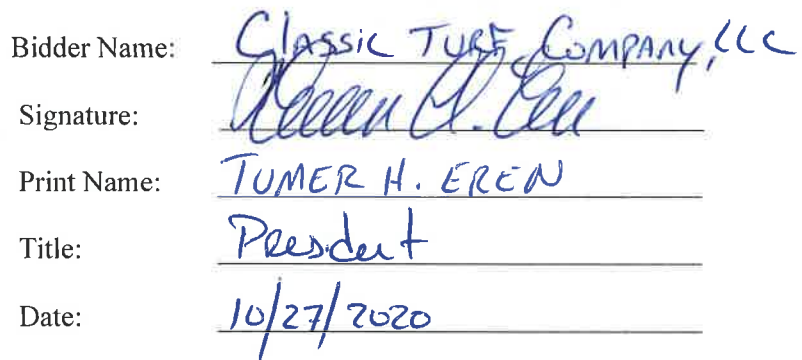 Bidder Name: Classic Turf Company, LLC
Signature:
Print Name: TUMER H. EREN
Title: President
Date: 10/27/2020